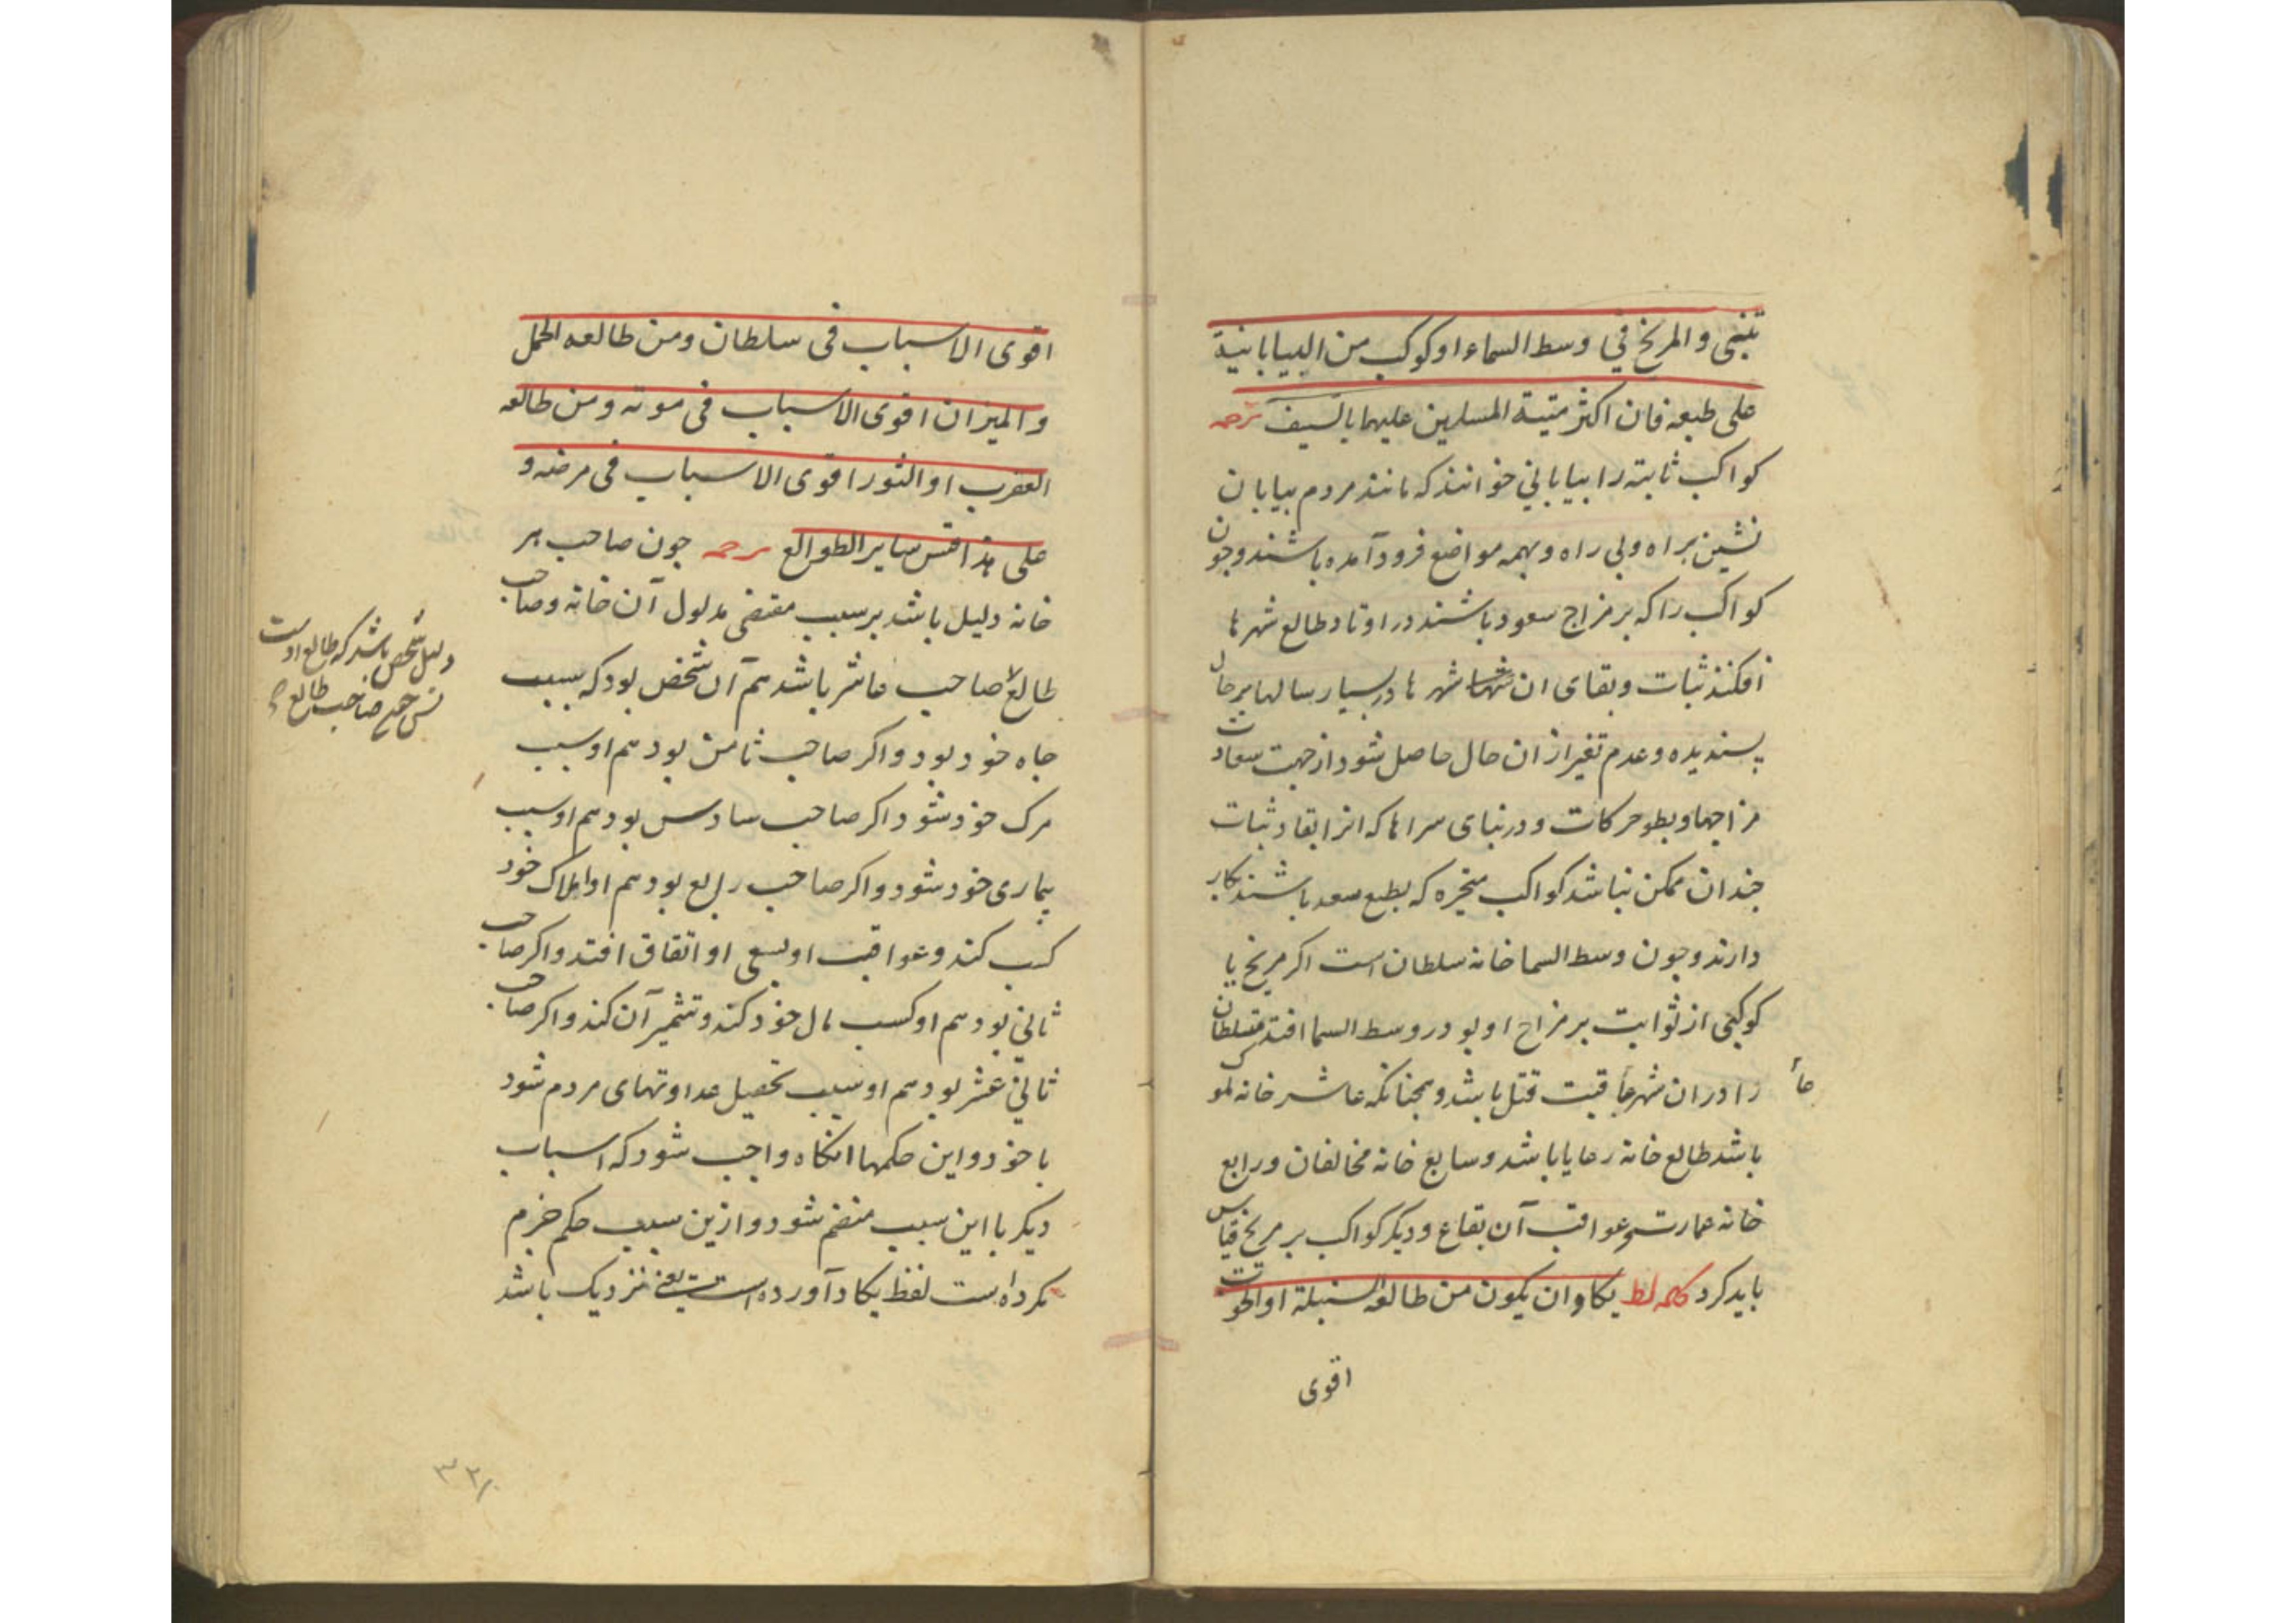 تبنی والمریخ فی وسط السماء او کوکب من البیابانیة
علی طبعه فان اکثر متیة المسلمین علیهما بالسیف ترجمه
کواکب ثابته را بیابانی خوانند که مانند مردم بیابان
نشین براه و بی راه و بهمه مواضع فرود آمده باشند و چون
کواکب را که بر مزاج سعود باشند در اوتاد طالع شهرها
افکنند ثبات و بقای ان شهرها در بسیار سالها بر حال
پسندیده و عدم تغیر از ان حال حاصل شود از جهت سعادت
مزاجها و بطو حرکات و در بنای سراها که انرا بقا و ثبات
جندان ممکن نباشد کواکب متحیره که بطبع سعد باشند بکار
دارند و جون وسط السما خانه سلطان است اکر مریخ یا
کوکبی از ثوابت بر مزاج او بود در وسط السما افتد متسلطان
را در ان شهر عاقبت قتل باشد و همجنانکه عاشر خانه ملوک
باشد طالع خانه رعایا باشد و سابع خانه مخالفان و رابع
خانه عمارت و عواقب آن بقاع و دیکر کواکب بر مریخ قیاس
باید کرد کلمه لط یکاد ان یکون من طالعه السنبلة او الحوت
اقوی
اقوی الاسباب فی سلطان ومن طالعه الحمل
والمیزان اقوی الاسباب فی موته ومن طالعه
العقرب او الثور اقوی الاسباب فی مرضه و
علی هذا قس سایر الطوالع ترجمه جون صاحب هر
خانه دلیل باشد بر سبب مقتضی مدلول آن خانه و صاحب
طالع صاحب عاشر باشد هم آن شخص بود که سبب
جاه خود بود و اکر صاحب ثامن بود هم او سبب
مرک خود شود و اکر صاحب سادس بود هم او سبب
بیماری خود شود و اکر صاحب رابع بود هم او املاک خود
کسب کند و عواقب او بسعی او اتفاق افتد و اکر صاحب
ثانی بود هم او کسب مال خود کند و تثمیر آن کند و اکر صاحب
ثانی عشر بود هم او سبب تحصیل عداوتهای مردم شود
با خود و این حکمها انکاه واجب شود که اسباب
دیکر با این سبب منضم شود و ازین سبب حکم جزم
نکرده است لفظ یکاد آورده است یعنی نزدیک باشد
دلیل شخص باشد که طالع اوست
صاحب طالع
۳۲